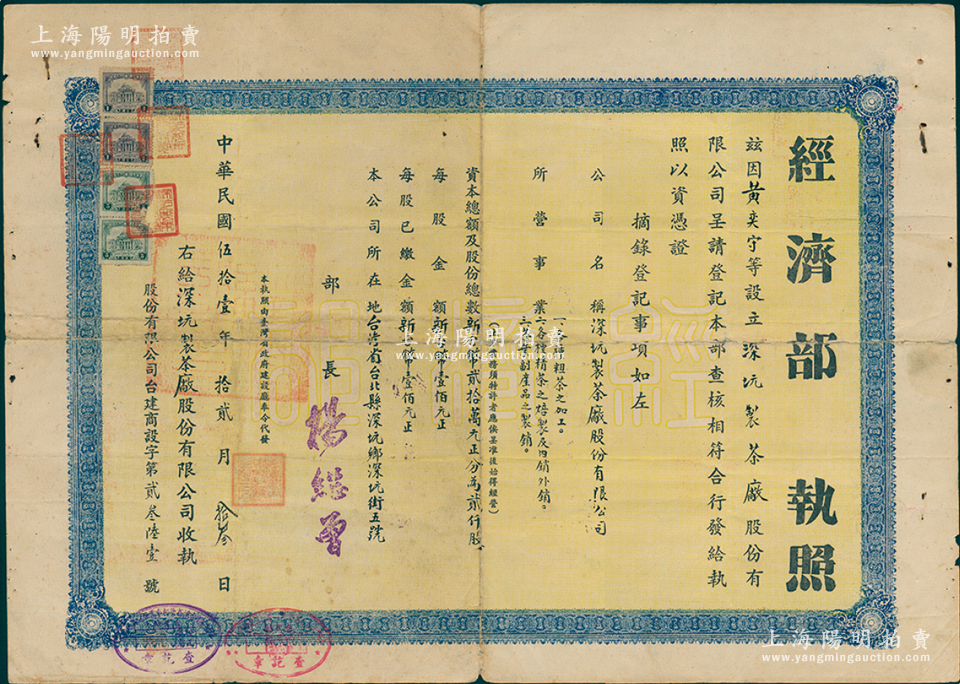 上海陽明拍賣
www.yangmingauction.com
經濟部執照
茲因黃奕守等設立深坑製茶廠股份有
限公司呈請登記本部查核相符合行發給執
照以資憑證
摘錄登記事項如左
公司名稱深坑製茶廠股份有限公司
所營事業
一、粗茶之加工。
二、各種精茶之焙製及內銷外銷。
三、副產品之製銷。
業務須特許者應俟甚准後始得經營)
資本總額及股份總數新台幣貳拾萬元正分為貳仟股
每股金額新台幣壹佰元正
每股已繳金額新台幣壹佰元正
本公司所在地台灣省台北縣深坑鄉深坑街五號
部長
楊繼曾
本執照由臺灣省政府建設廳奉令代發
中華民國伍拾壹年拾貳月拾叁日
右給深坑製茶廠股份有限公司收執
股份有限公司台建商設字第貳叁陸壹號
查訖章
查訖章
上海陽明拍賣
www.yangmingauction.com
上海陽明拍賣
www.yangmingauction.com